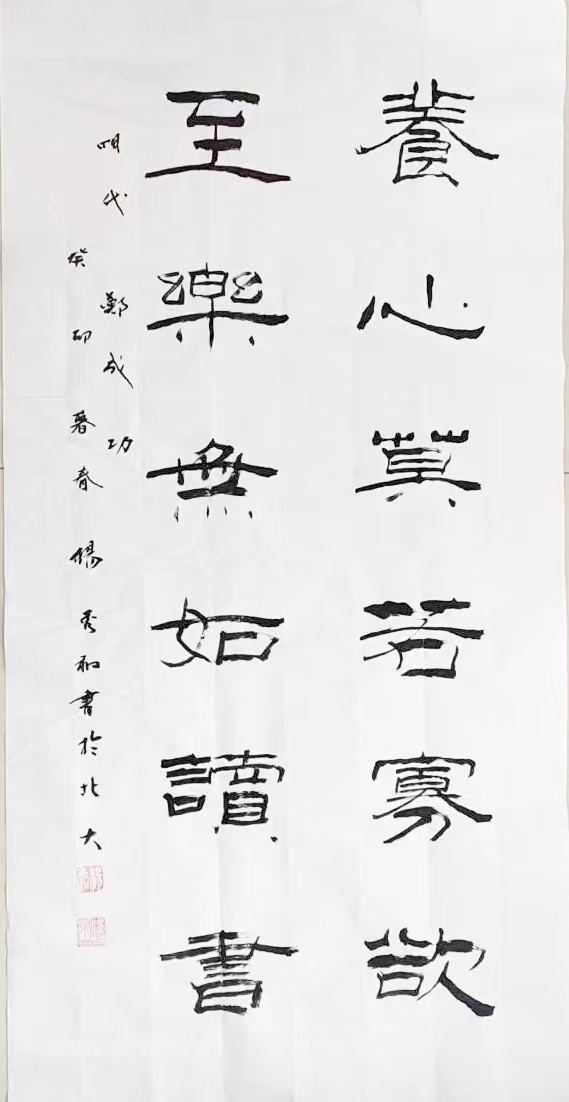 養心莫若寡欲
至樂無如讀書
明代鄭成功
癸卯暮春楊秀和書於北大